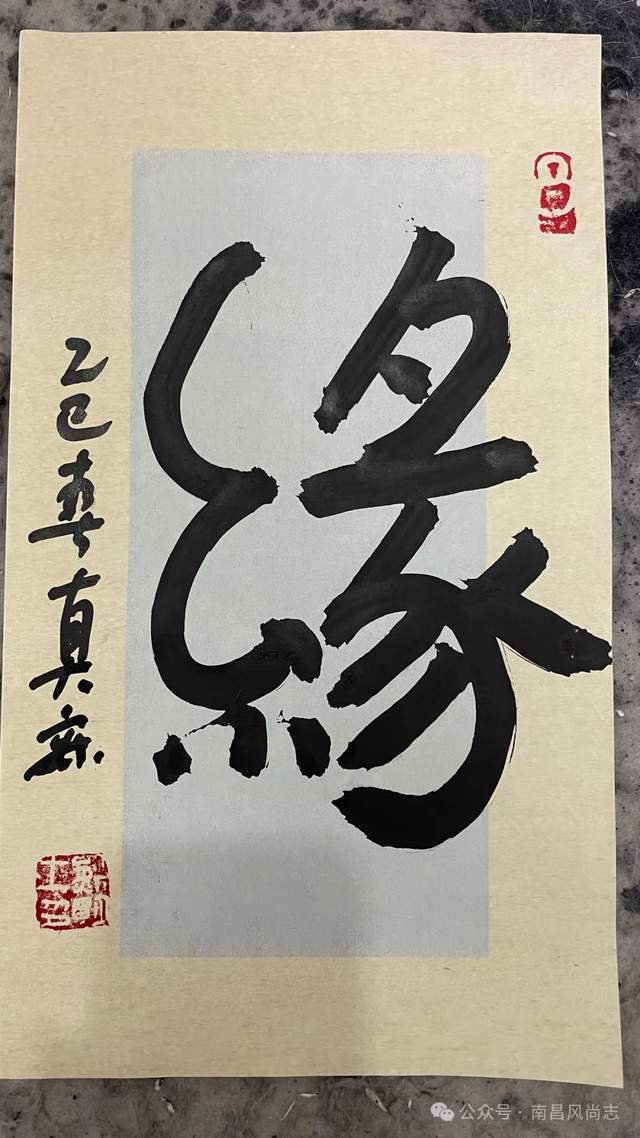 緣
乙巳春真森
公众号·南昌风尚志